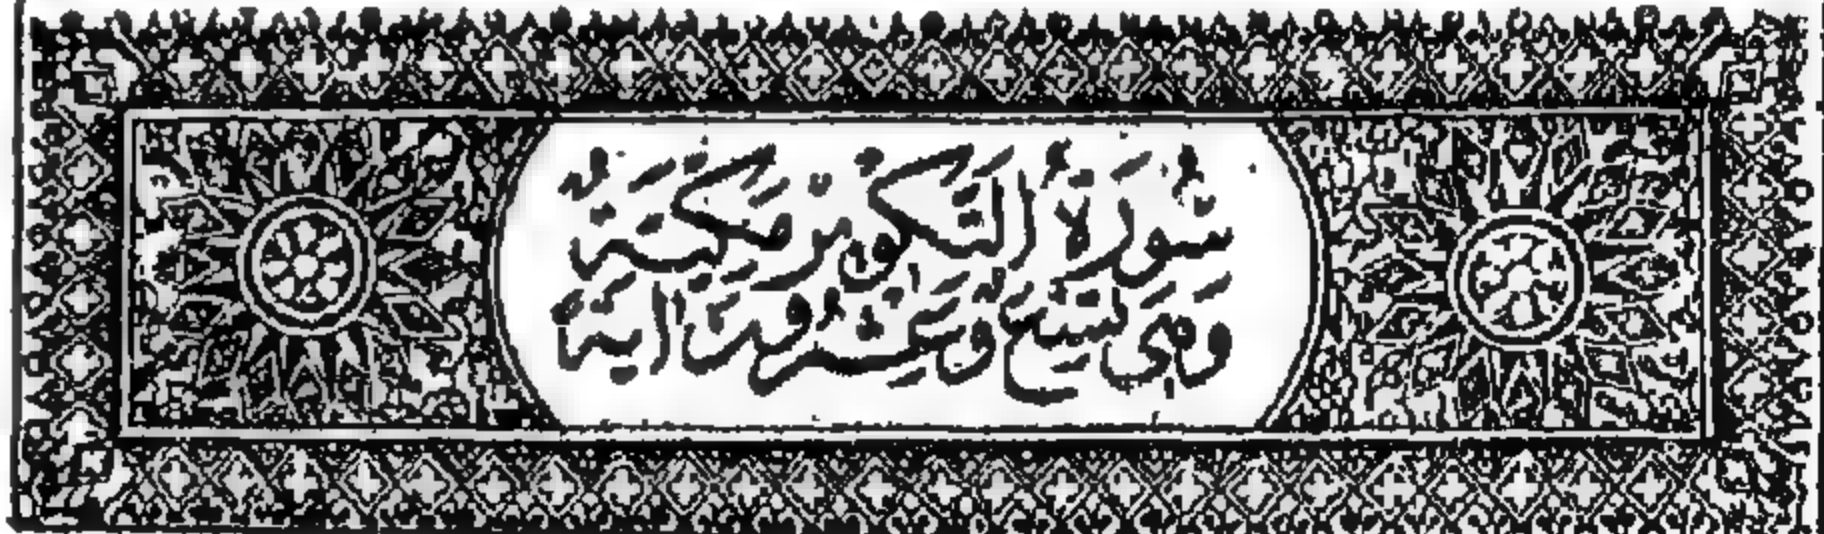 سُورَةُ التَّكْوِيرِ مَكِّيَّةٌ
وَهِيَ تِسْعٌ وَعِشْرُونَ آيَةً